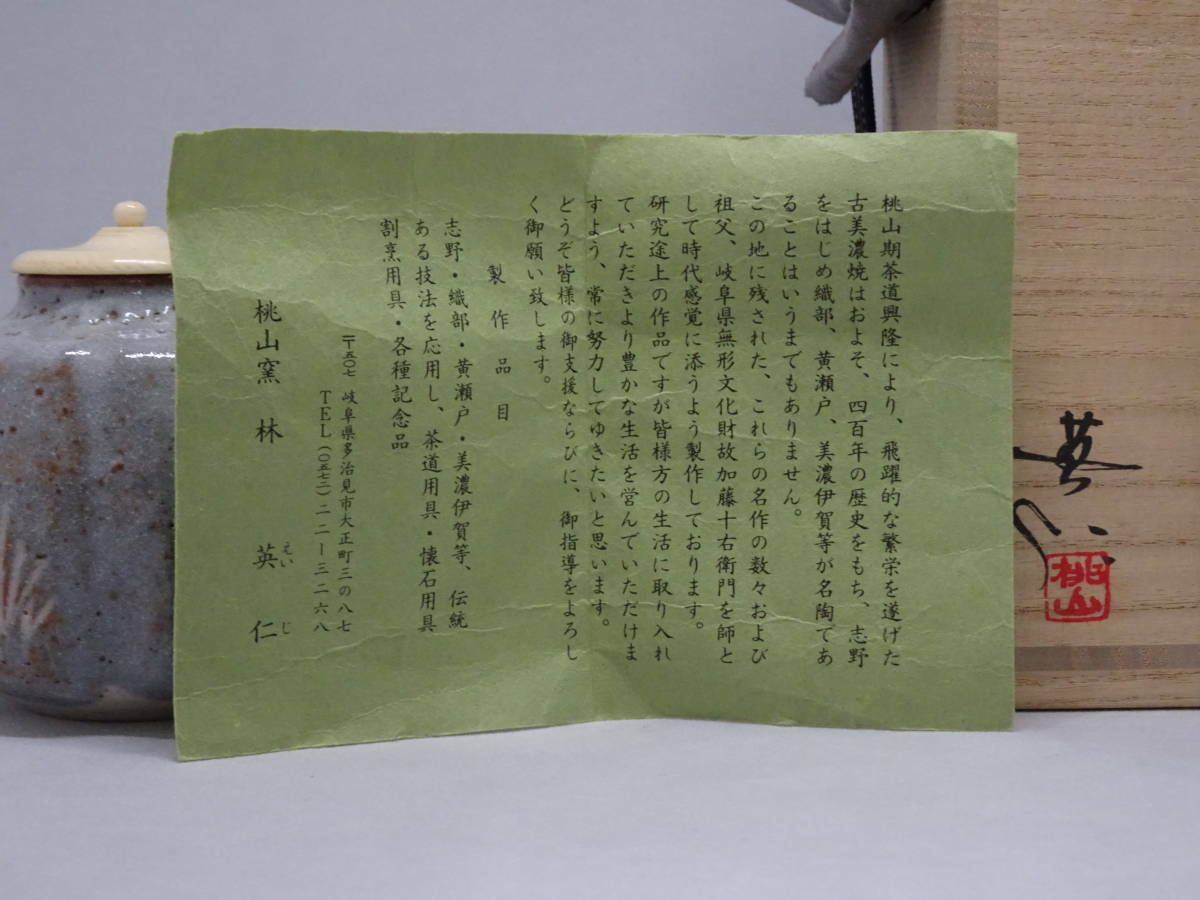 桃山期茶道興隆により、飛躍的な繁栄を遂げた
古美濃焼はおよそ、四百年の歴史をもち、志野
をはじめ織部、黄瀬戸、美濃伊賀等が名陶であ
ることはいうまでもありません。
この地に残された、これらの名作の数々および
祖父、岐阜県無形文化財故加藤十右衛門を師と
して時代感覚に添うよう製作しております。
研究途上の作品ですが皆様方の生活に取り入れ
ていただきより豊かな生活を営んでいただけま
すよう、常に努力してゆきたいと思います。
どうぞ皆様の御支援ならびに、御指導をよろし
く御願い致します。
製作品目
志野・織部・黄瀬戸・美濃伊賀等、伝統
ある技法を応用し、茶道用具・懐石用具
割烹用具・各種記念品
〒五〇七 岐阜県多治見市大正町三の八七
TEL(〇五七二)二二ー三二六八
桃山窯 林 英仁
えいじ
英仁
桃山